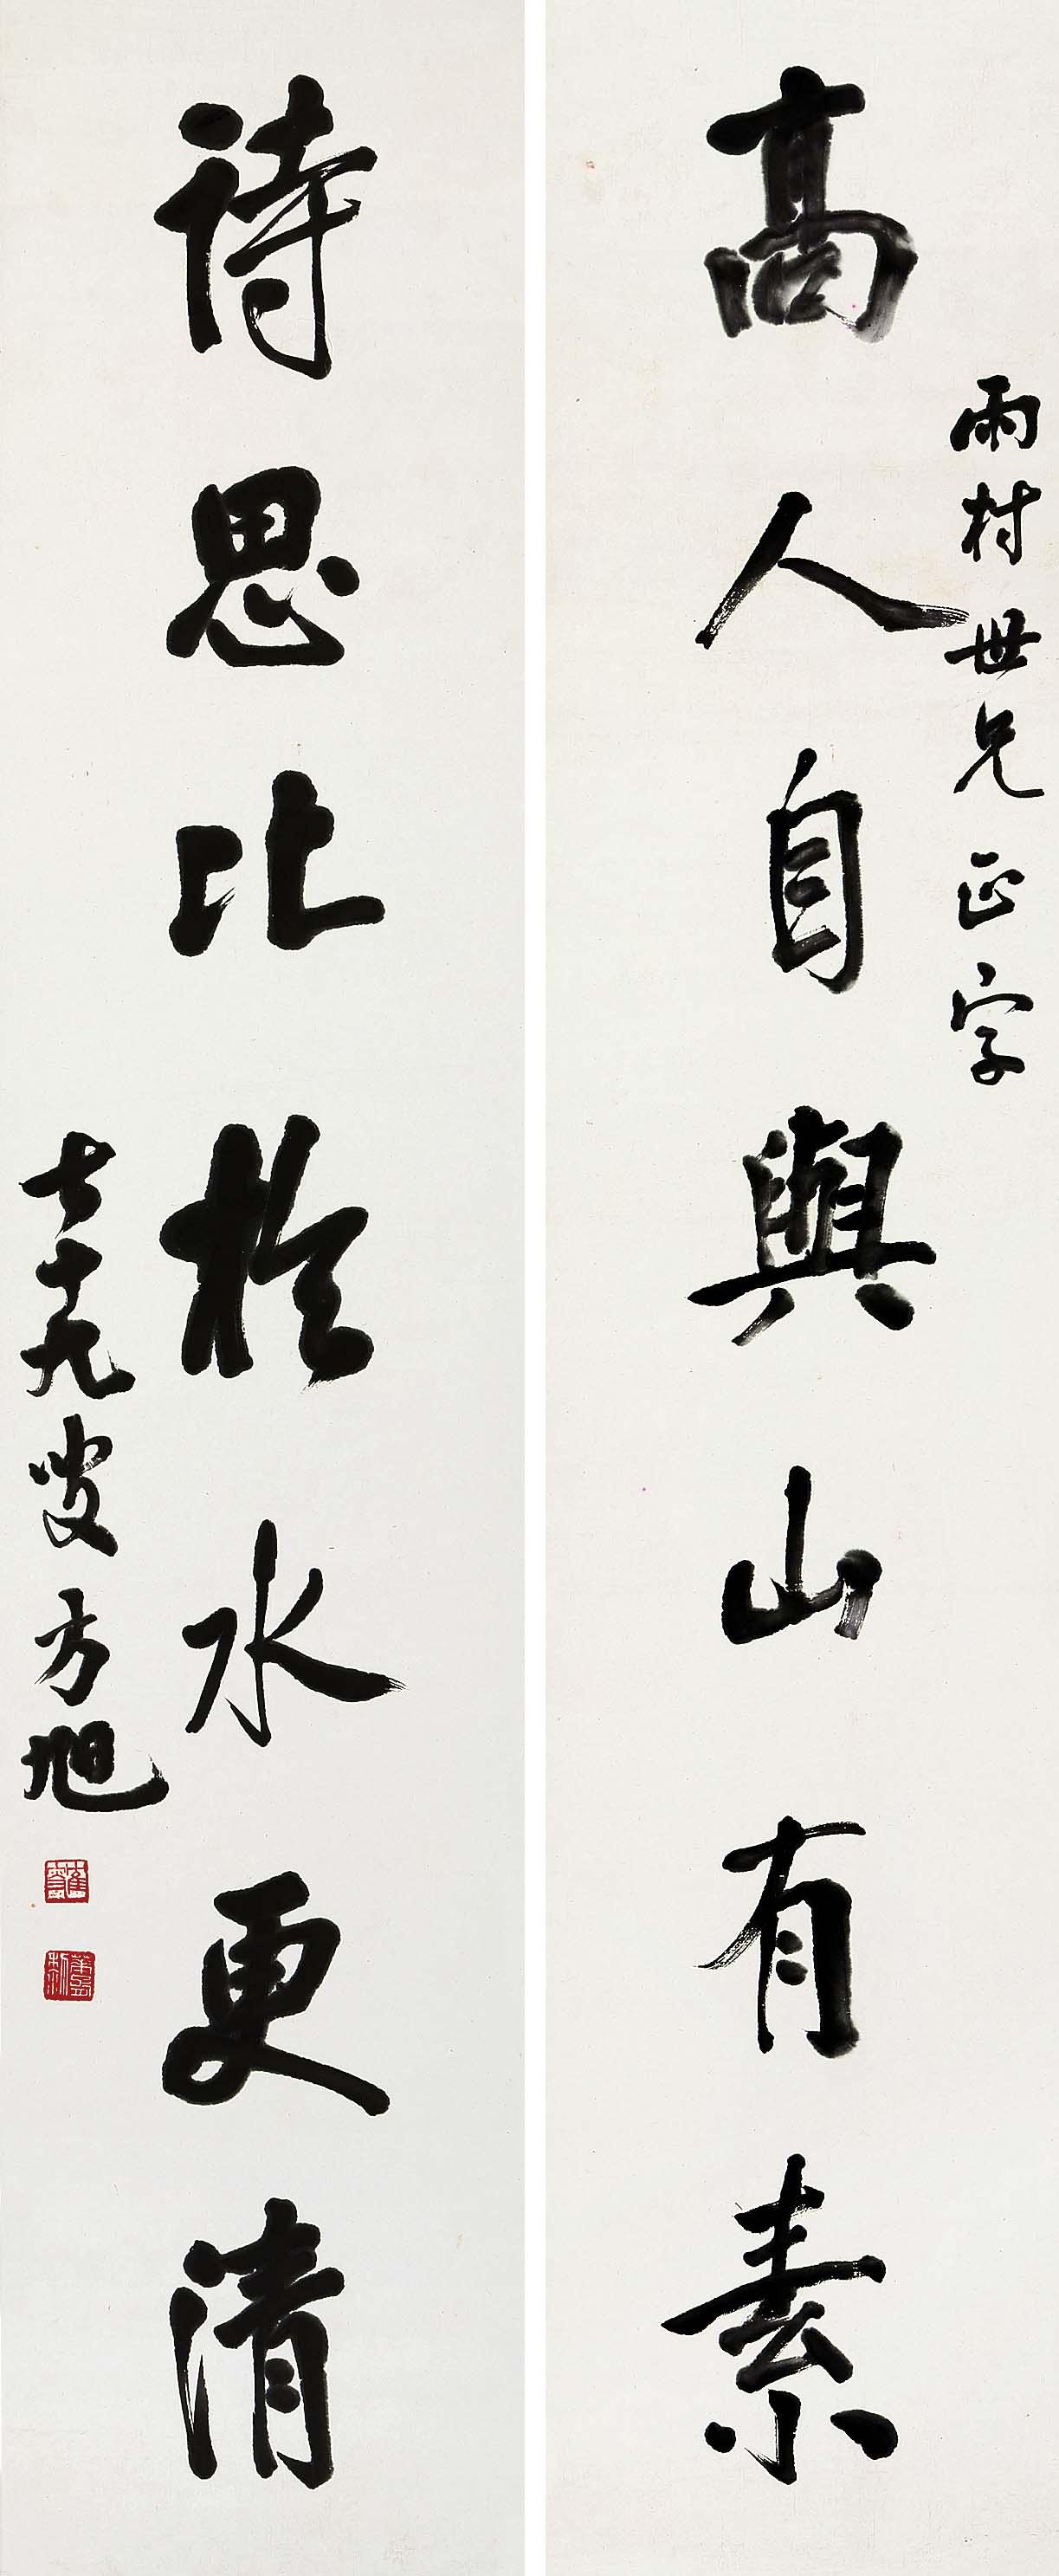 高人自與山有素
雨村世兄正字
詩思比於水更清
七十九叟方旭